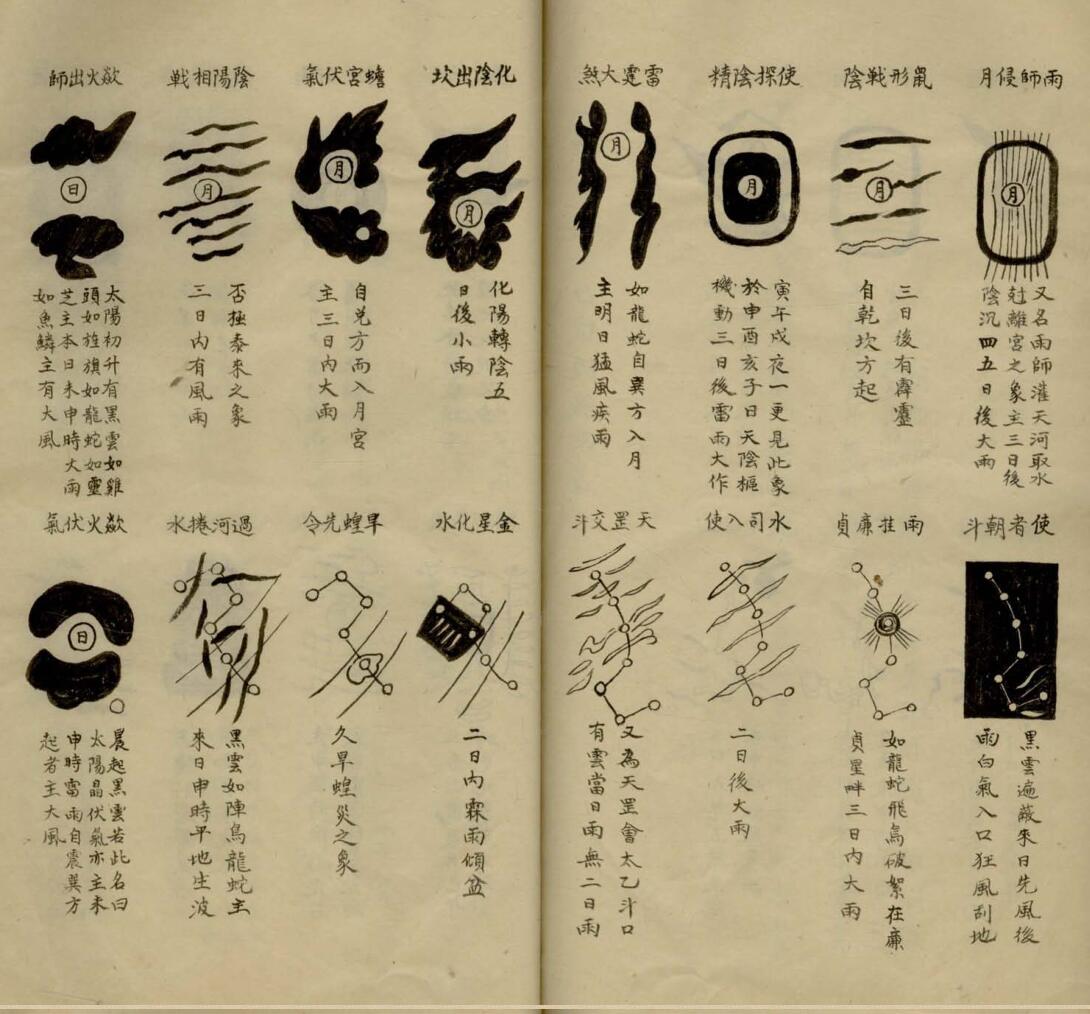 雨師侵月
月
又名雨師灌天河取水
尅離宮之象主三日後
陰沉四五日後大雨
鼠形戰陰
月
三日後有霹靂
自乾坎方起
使探陰精
月
寅午戌夜一更見此象
於申酉亥子日天陰樞
機動三日後雷雨大作
雷霆大煞
月
如龍蛇自巽方入月
主明日猛風疾雨
使者朝斗
黑雲遍蔽來日先風後
雨白氣入口狂風刮地
雨挂廉貞
如龍蛇飛鳥破絮在廉
貞星畔三日內大雨
水司入使
二日後大雨
天罡交斗
又為天罡會太乙斗口
有雲當日雨無二日雨
化陰出坎
月
化陽轉陰五
日後小雨
蟾宮伏氣
月
自兌方而入月宮
主三日內大雨
陰陽相戦
月
否極泰來之象
三日內有風雨
歘火出師
日
太陽初升有黑雲如雞
頭如旌旗如龍蛇如靈
芝主本日未申時大雨
如魚鱗主有大風
金星化水
二日內霖雨傾盆
旱蝗先令
久旱蝗災之象
過河捲水
黑雲如陣鳥龍蛇主
來日申時平地生波
歘火伏氣
日
晨起黑雲若此名曰
太陽晶伏氣亦主未
申時雷雨自震巽方
起者主大風